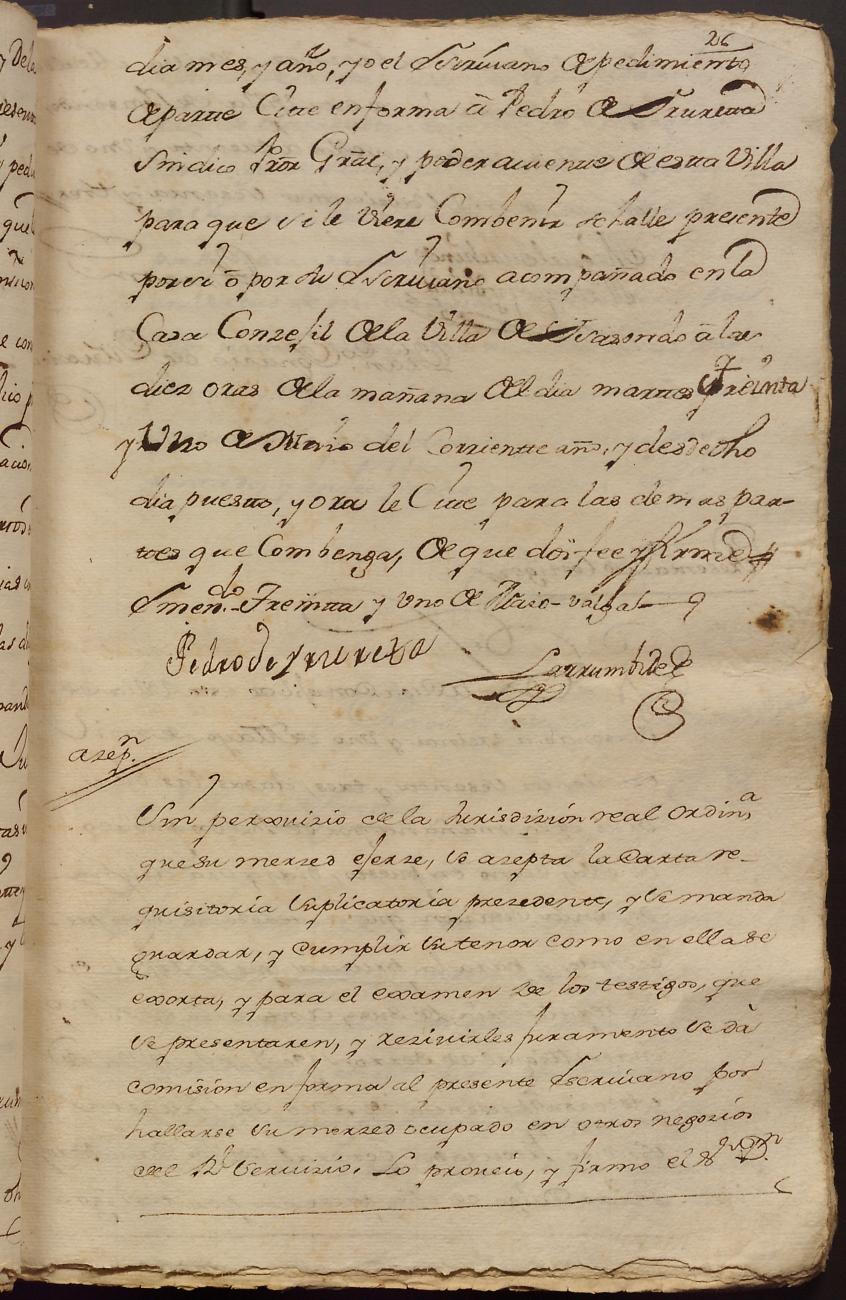 26
dia mes, y año, yo el Escriuano de pedimiento
de parte Cite en forma â Pedro de Yrureta
Sindico Pror Gral, y poderauiente de esta Villa
para que si le Viere Combenir se halle presente
por si ô por su Escriuano acompañado en la
Casa Conzejil de la Villa de âlas
diez oras de la mañana del dia martes Treinta
y Uno de Maio del Corriente año, y desdedho
dia puesto, y ora le Cite para las demas par-
tes que Combenga, de que doi fee y firme
Emendo - Treinta y Uno de Maio - valga
Pedro de Yrureta
Larrumbide
azepn.
Sin perxuizio de la Jurisdizión real ordina
que su merzed ejerze, se azepta la Carta re-
quisitoria suplicatoria prezedente, y se manda
guardar, y cumplir su tenor como en ella se
exorta, y para el examen de los testigos, que
se presentaren, y reziuirles juramento se dà
comisión en forma al presente Escriuano por
hallarse su merzed ocupado en otros negozios
del Rl Seruizio. Lo proueio, y firmo el Sr Dn